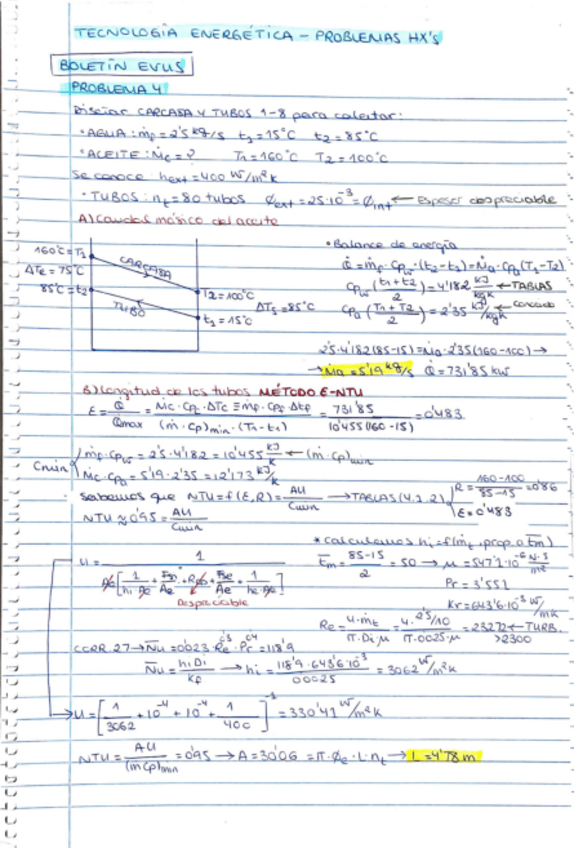 TECNOLOGÍA ENERGÉTICA – PROBLEMAS HX's
BOLETÍN EVUS
PROBLEMA 4
Diseñar CARCASA Y TUBOS 1-8 para calentar:
• AGUA: ṁf = 2'5 kg/s t1 = 15°C t2 = 85°C
• ACEITE: Ṁc = ? T1 = 160°C T2 = 100°C
Se conoce: hext = 400 W/m²K
• TUBOS: nt = 80 tubos ϕext = 25·10⁻³ = ϕint ← Espesor despreciable
A) Caudal másico del aceite
160°C = T1
ΔTe = 75°C
85°C = t2
CARCASA
TUBO
T2 = 100°C
t1 = 15°C
ΔTs = 85°C
• Balance de energía
Q̇ = ṁf · Cpw · (t2 - t1) = Ṁa · Cpa (T1 - T2)
Cpw ((t1+t2)/2) = 4'182 kJ/kgK ← TABLAS
Cpa ((T1+T2)/2) = 2'35 kJ/kgK ←
2'5 · 4'182 (85-15) = Ṁa · 2'35 (160-100) →
→ Ṁa = 5'19 kg/s Q̇ = 731'85 kW
B) Longitud de los tubos MÉTODO E-NTU
ε = Q̇/Qmax = Ṁc · Cpc · ΔTc ≡ ṁf · Cpf · Δtf / (ṁ · Cp)min · (T1 - t1) = 731'85 / 10'455 (160 - 15) = 0'483
Cmin { ṁf · Cpw = 2'5 · 4'182 = 10'455 kJ/K ← (ṁ · Cp)min
Ṁc · Cpa = 5'19 · 2'35 = 12'173 kJ/K
Sabemos que NTU = f(ε,R) = AU/Cmin → TABLAS (4.1.2) { R = (160-100)/(85-15) = 0'86
ε = 0'483
NTU ≈ 0'95 = AU/Cmin
* Calculamos hi = f(ṁt, prop a t̄m)
U = 1 / Ae [1/(hi · Ae) + Rsi/Ae + Rcd + Rse/Ae + 1/(he · Ae)]
Despreciable
t̄m = (85-15)/2 = 50 → μ = 547'1·10⁻⁶ N·S/m²
Pr = 3'551
Kf = 643'6·10⁻³ W/mK
Re = 4 · ṁt / π · Di · μ = 4 · 2'5/10 / π · 0'025 · μ = 23272 ← TURB.
>2300
CORR. 27 → N̄u = 0'023 · Re^0'8 · Pr^0'4 = 118'9
N̄u = hi Di / kf → hi = 118'9 · 643'6·10⁻³ / 0'0025 = 3062 W/m²K
→ U = [1/3062 + 10⁻⁴ + 10⁻⁴ + 1/400]⁻¹ = 330'41 W/m²K
NTU = AU/(ṁCp)min = 0'95 → A = 30'06 = π · ϕe · L · nt → L = 4'78 m